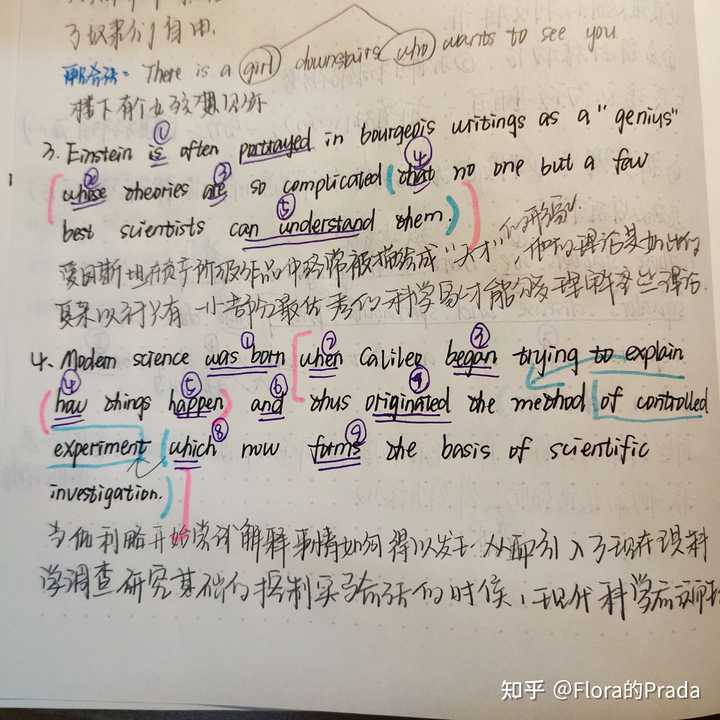 了奴隶们自由.
There is a girl downstairs who wants to see you
楼下有个女孩想见你
① ③ ④
3. Einstein is often portrayed in bourgeois writings as a "genius"
② whose theories are so complicated (that no one but a few
⑤
best scientists can understand them.)
爱因斯坦 阶级作品中经常被描绘成 "天才" 的形象, 他的理论是如此的
复杂以 只有一小部分最优秀的科学家才能够理解这些理论.
① ② ③
4. Modern science was born when Galileo began trying to explain
④ ⑤ ⑥
how things happen and thus originated the method of controlled
⑧ ⑨
experiment which now forms the basis of scientific
investigation.
当伽利略开始尝试解释事情如何得以发生 从而引入了现在现科
学调查研究基础的控制实验 的时候, 现代科学
知乎 @Flora的Prada